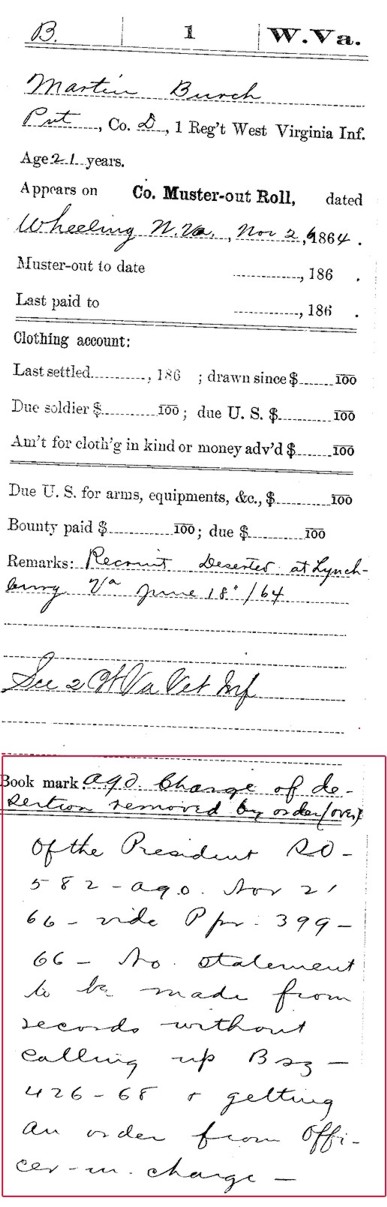 B. 1 W.Va.
Martin Burch
Pvt, Co. D, 1 Reg't West Virginia Inf.
Age 21 years.
Appears on Co. Muster-out Roll, dated
Wheeling W.Va., Nov 26, 1864.
Muster-out to date , 186 .
Last paid to , 186 .
Clothing account:
Last settled , 186 ; drawn since $ 100
Due soldier $ 100; due U. S. $ 100
Am't for cloth'g in kind or money adv'd $ 100
Due U. S. for arms, equipments, &c., $ 100
Bounty paid $ 100; due $ 100
Remarks: Recruit Deserted at Lynch-
burg Va June 18" /64
See 2 W Va Vet Inf
Book mark ago Charge of de-
sertion removed by order (over)
Of the President SO-
582 - ago. Nov 21
66 - vide P pr. 399-
66 - No. statement
to be made from
records without
calling up B
426-68 & getting
an order from Offi-
cer-in-charge -